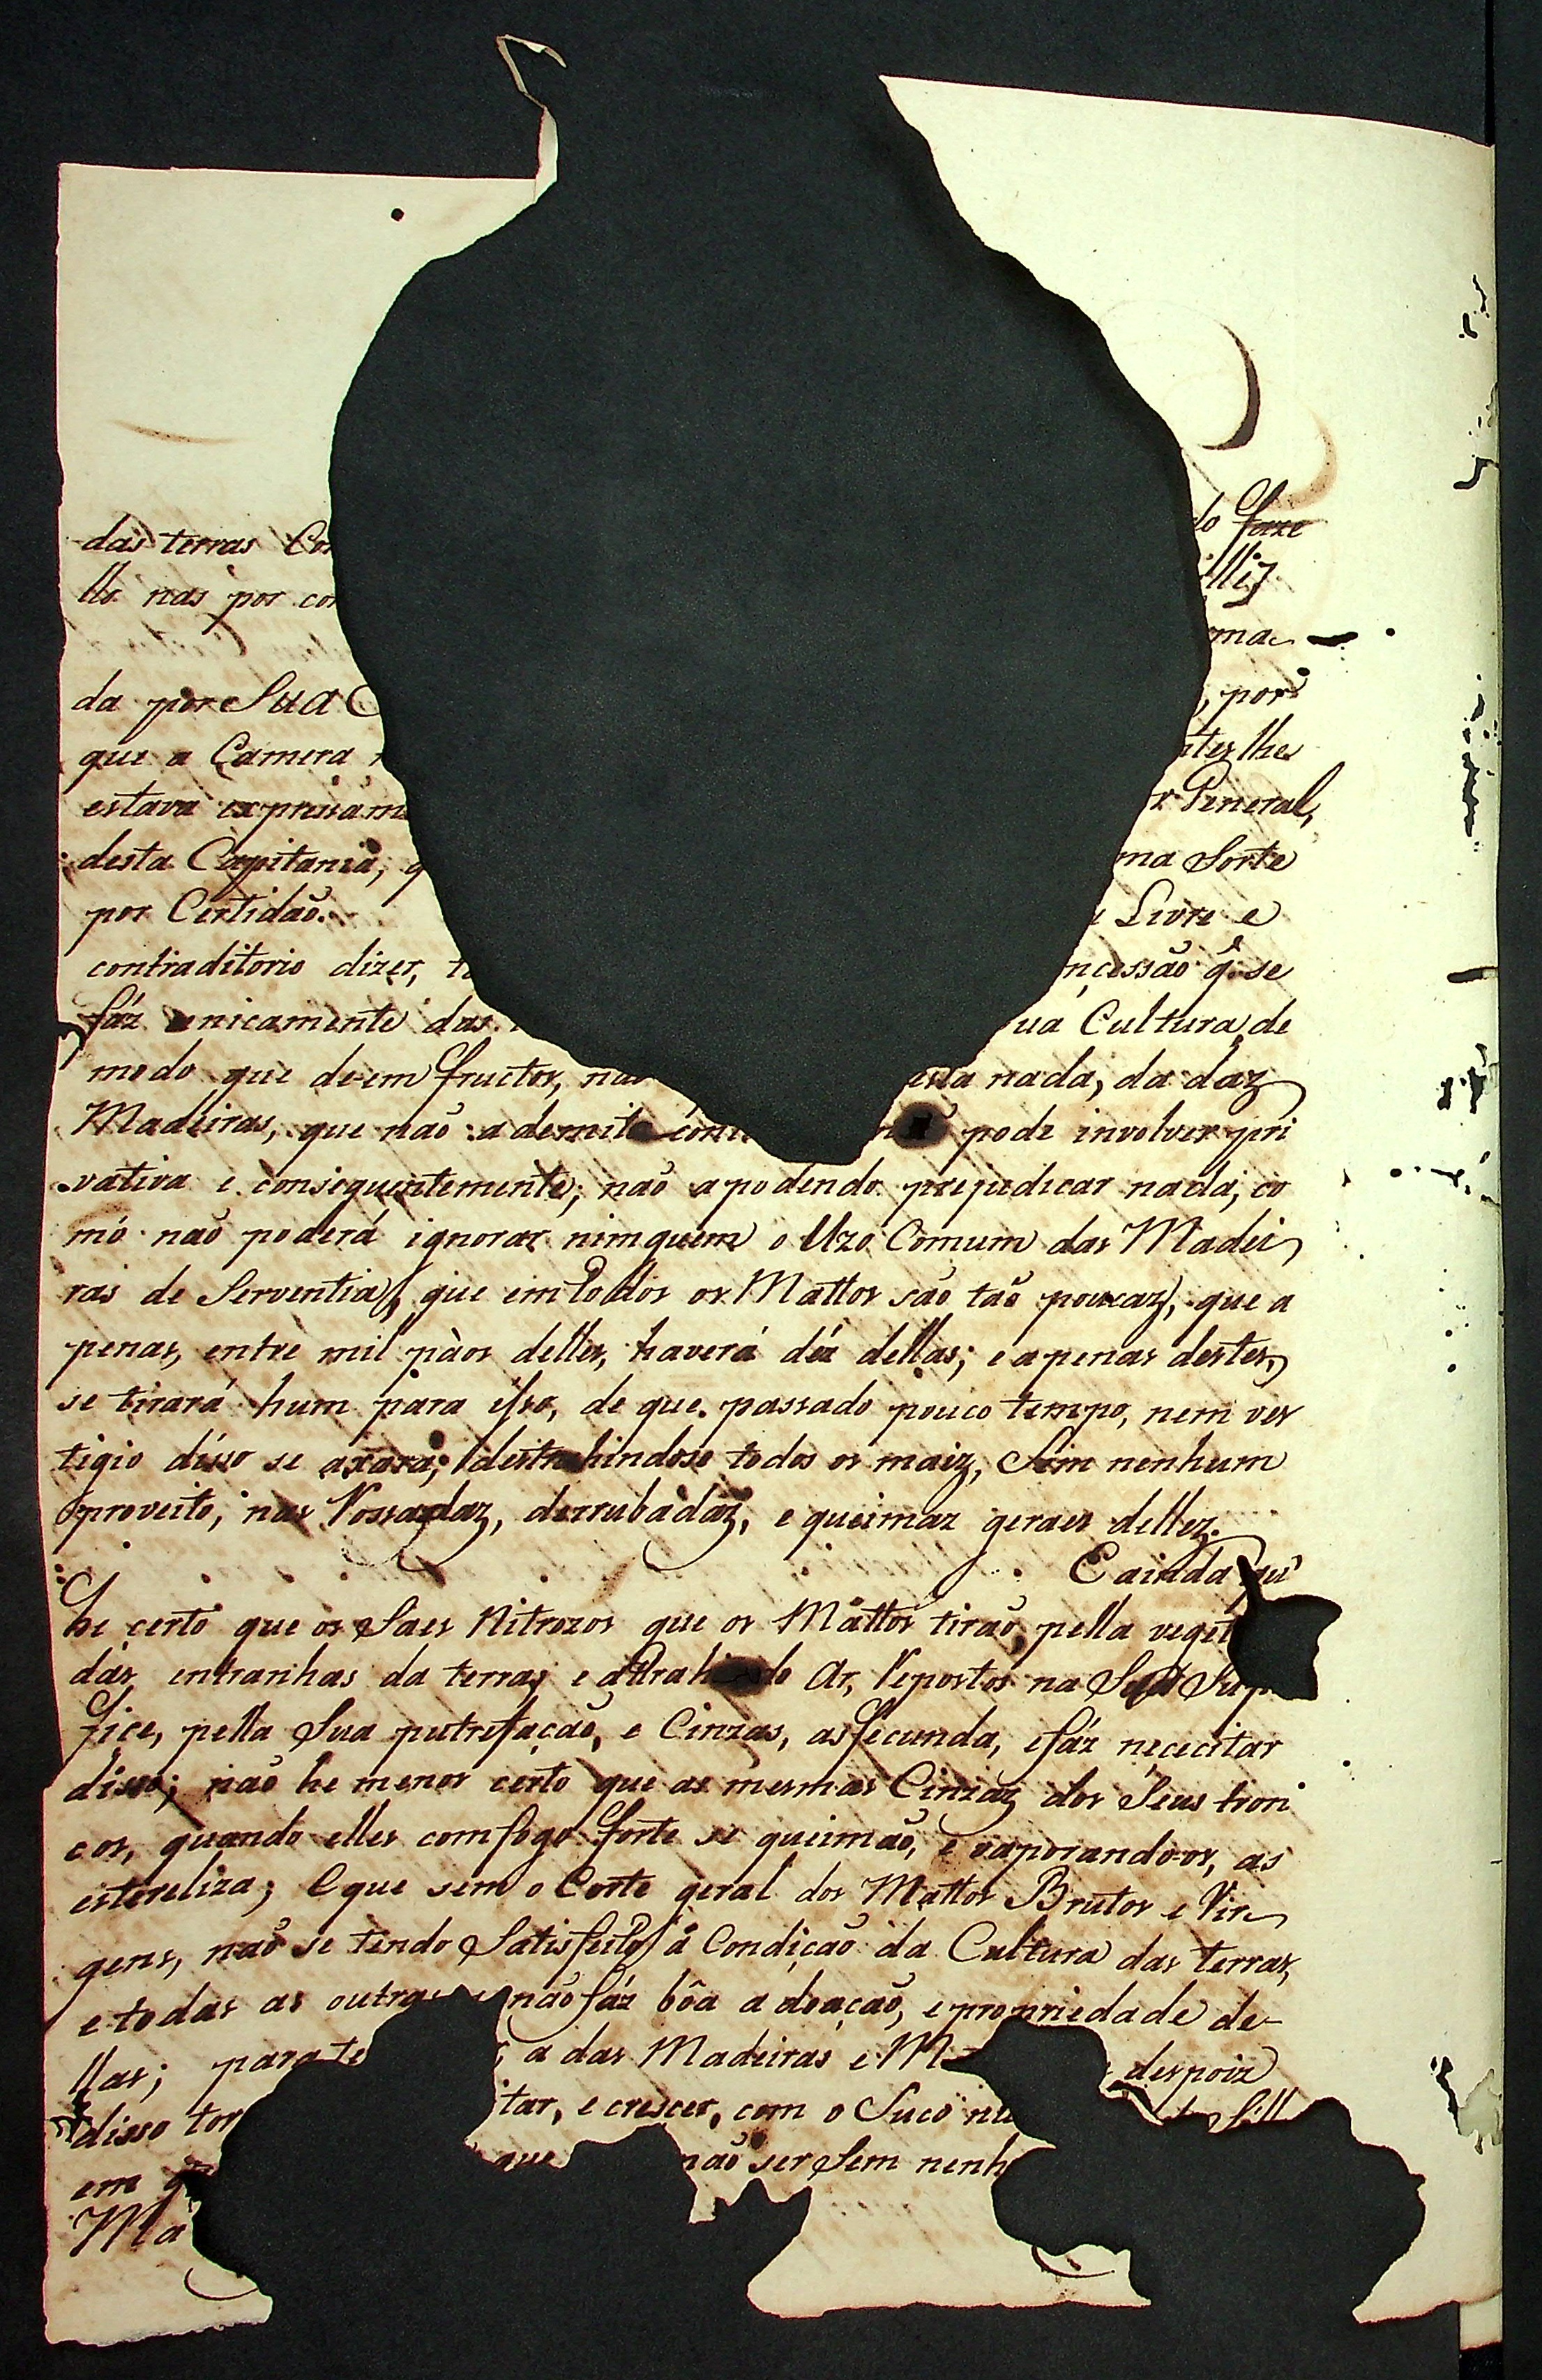 das terras Con do faze
llo nas por con illiz
ma
da por Sua , por
que a Camera ntes lhe
estava expressam r General,
desta Capitania, q ma Sorte
por Certidaõ. Livre e
contraditorio dizer, t ncessão q. se
fáz unicamente das ua Cultura de
modo que deem fructos, na esta nada, da daz
Madeiras, que naõ ademite con pode involver pri
vativa e consequentemente; naõ a podendo prejudicar nada, co
mo naõ poderá ignorar nimguem o Uzo Comum das Madei
ras de Serventia, que em todos os Mattos saõ taõ poucaz, que a
penas, entre mil páos delles, haverá déz dellas; e apenas destes,
se tirará hum para isso, de que passado pouco tempo, nem ves
tigio disso se axara; destrahindose todos os maiz, Sem nenhum
proveito, nas Rossadaz, derrubadaz, e queimaz geraes dellez.
E ainda que
he certo que os Saes Nitrozos que os Mattos tiraõ, pella veget
das entranhas da terra; e attrah do Ar, Repostos na Sua Sup
fice, pella Sua putrefaçaõ, e Cinzas, as fecunda, e fáz nececitar
disso; naõ he menos certo que as mesmas Cinzaz dos Seus tron
cos, quando elles com fogo forte se queimaõ, evaporando-os, as
estereliza; E que sem o Corte geral dos Mattos Brutos e Vir
gens, naõ se tendo Satisfeito á Condiçaõ da Cultura das terras,
e todas as outras naõ fáz bôa a doaçaõ, e propriedade de-
llas; para te , a das Madeiras e M despoiz
disso tor tar, e crescer, com o Suco nu
em que naõ ser Sem nenh
Ma